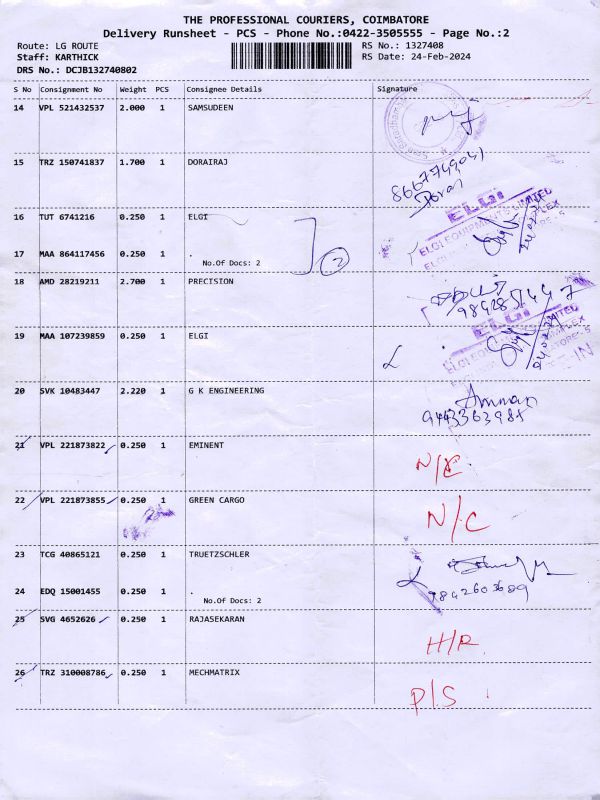 THE PROFESSIONAL COURIERS, COIMBATORE
Delivery Runsheet - PCS - Phone No.:0422-3505555 - Page No.:2
Route: LG ROUTE RS No.: 1327408
Staff: KARTHICK RS Date: 24-Feb-2024
DRS No.: DCJB132740802
S No Consignment No Weight PCS Consignee Details Signature
14 VPL 521432537 2.000 1 SAMSUDEEN
15 TRZ 150741837 1.700 1 DORAIRAJ
8667749041
16 TUT 6741216 0.250 1 ELGI
ELGI
ELGI EQUIPMENTS LIMITED
17 MAA 864117456 0.250 1 .
No.Of Docs: 2
2
18 AMD 28219211 2.700 1 PRECISION
19 MAA 107239859 0.250 1 ELGI
ELGI
20 SVK 10483447 2.220 1 G K ENGINEERING
21 VPL 221873822 0.250 1 EMINENT
N/C
22 VPL 221873855 0.250 1 GREEN CARGO
N/C
23 TCG 40865121 0.250 1 TRUETZSCHLER
24 EDQ 15001455 0.250 1 .
No.Of Docs: 2
9842603689
25 SVG 4652626 0.250 1 RAJASEKARAN
H/R
26 TRZ 310008786 0.250 1 MECHMATRIX
P/S